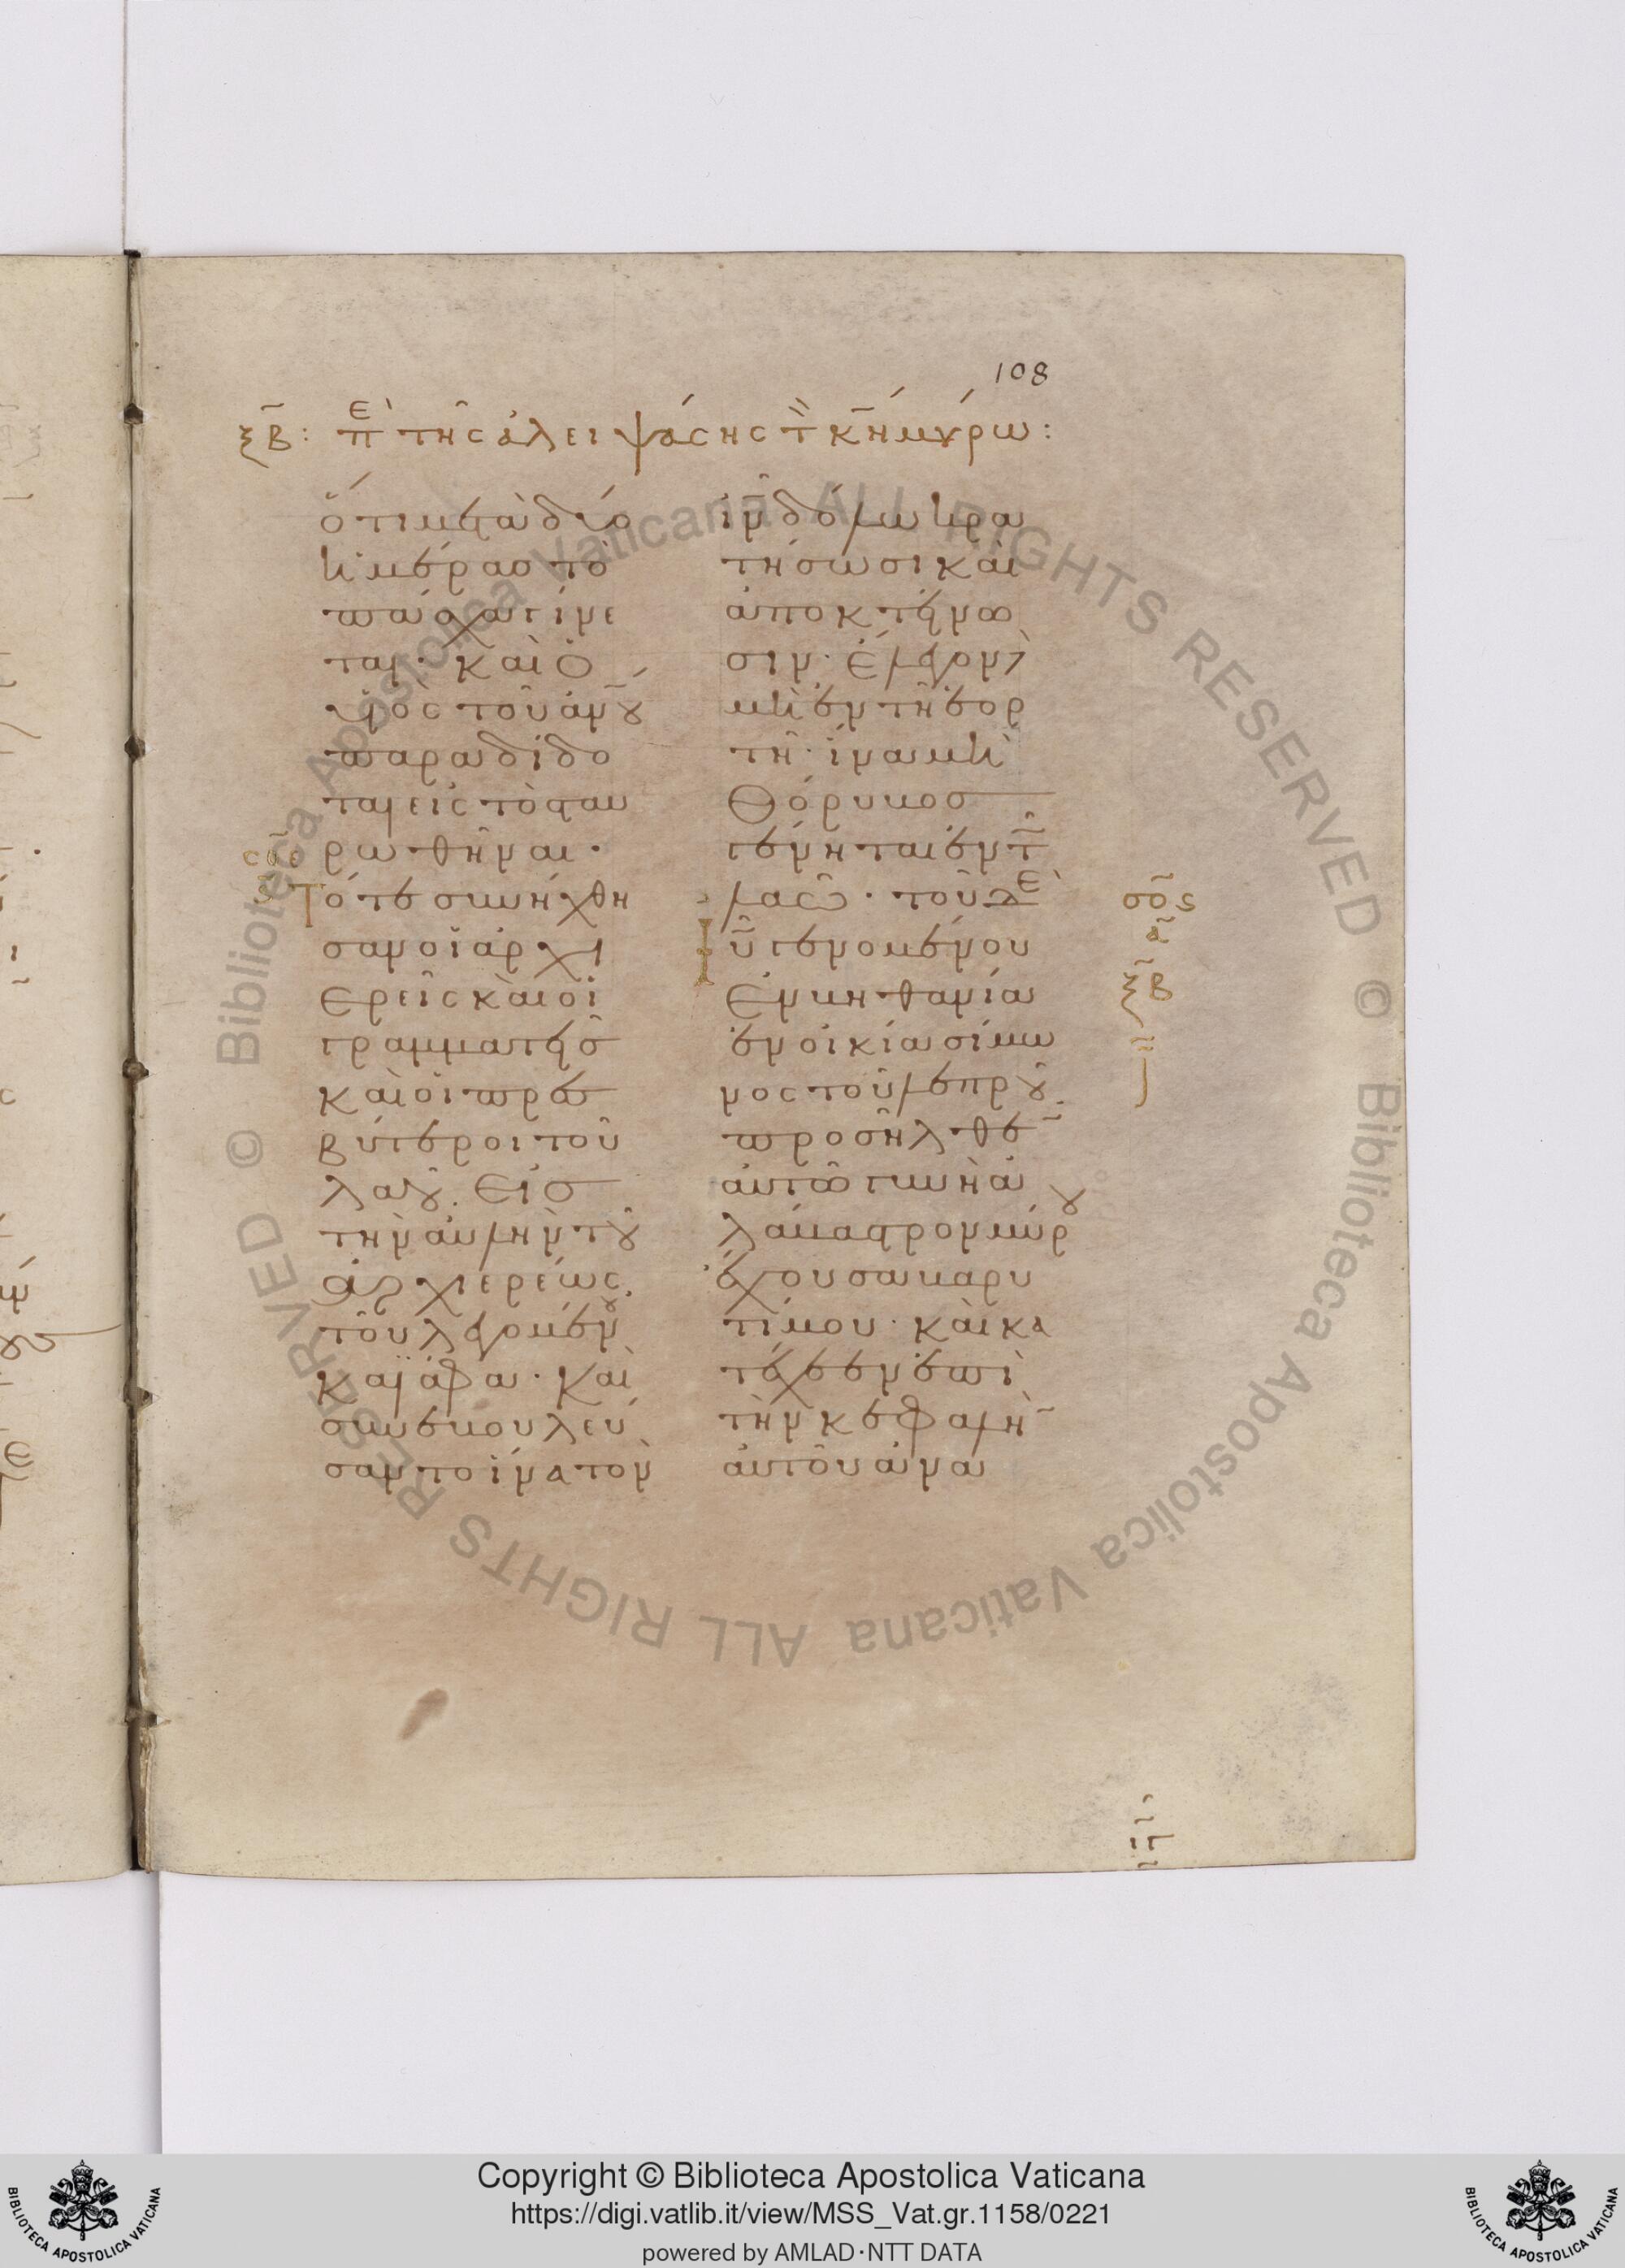 108
ξβ: πε τῆς ἀλειψάσης τ κν μύρω:
ὅτι μετὰ δύο
ἡμέρας τὸ
πάσχα γίνε
ται· καὶ ὁ
υἱὸς τοῦ ἀνου
παραδίδο
ται εἰς τὸ σταυ
ρωθῆναι·
Τότε συνήχθη
σαν οἱ ἀρχι
ερεῖς καὶ οἱ
γραμματεῖς
καὶ οἱ πρεσ
βύτεροι τοῦ
λαοῦ. εἰς
τὴν αὐλὴν τοῦ
ἀρχιερέως.
τοῦ λεγομένου
καϊάφα· καὶ
συνεβουλεύ
σαντο ἵνα τὸν
ιν δόλω κρα
τήσωσι καὶ
ἀποκτείνω
σιν· ἔλεγον δὲ
μὴ ἐν τῆ ἑορ
τῆ· ἵνα μὴ
θόρυβος
γένηται ἐν τ
λαῶ· τοῦ δὲ
ιυ γενομένου
ἐν βηθανία
ἐν οἰκία σίμω
νος τοῦ λεπροῦ.
προσῆλθεν
αὐτῶ γυνὴ ἀ
λάβαστρον μύρου
ἔχουσα βαρυ
τίμου· καὶ κα
τέχεεν ἐπὶ
τὴν κεφαλὴν
αὐτοῦ ἀνα
σος
ξβ
Copyright © Biblioteca Apostolica Vaticana
https://digi.vatlib.it/view/MSS_Vat.gr.1158/0221
powered by AMLAD·NTT DATA
BIBLIOTECA APOSTOLICA VATICANA
BIBLIOTECA APOSTOLICA VATICANA
© Biblioteca Apostolica Vaticana ALL RIGHTS RESERVED © Biblioteca Apostolica Vaticana ALL RIGHTS RESERVED